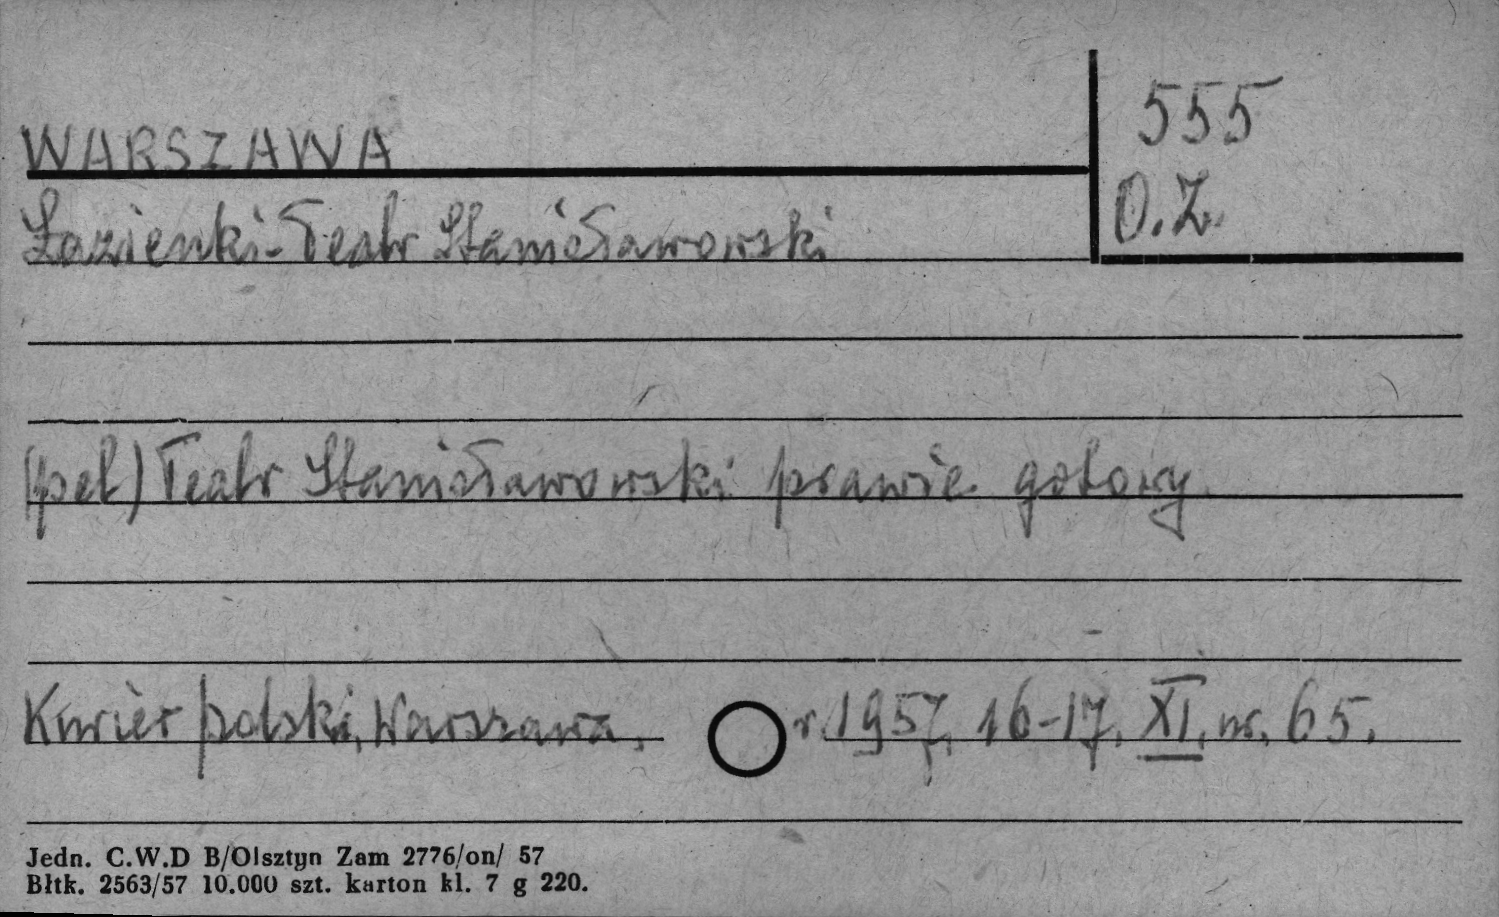 WARSZAWA
555
O.Z.
Łazienki-Teatr Stanisławowski
(pel) Teatr Stanisławowski prawie gotowy.
Kurier polski, Warszawa, r. 1957, 16-17. XI. nr. 65.
Jedn. C.W.D B/Olsztyn Zam 2776/on/ 57
Błtk. 2563/57 10.000 szt. karton kl. 7 g 220.